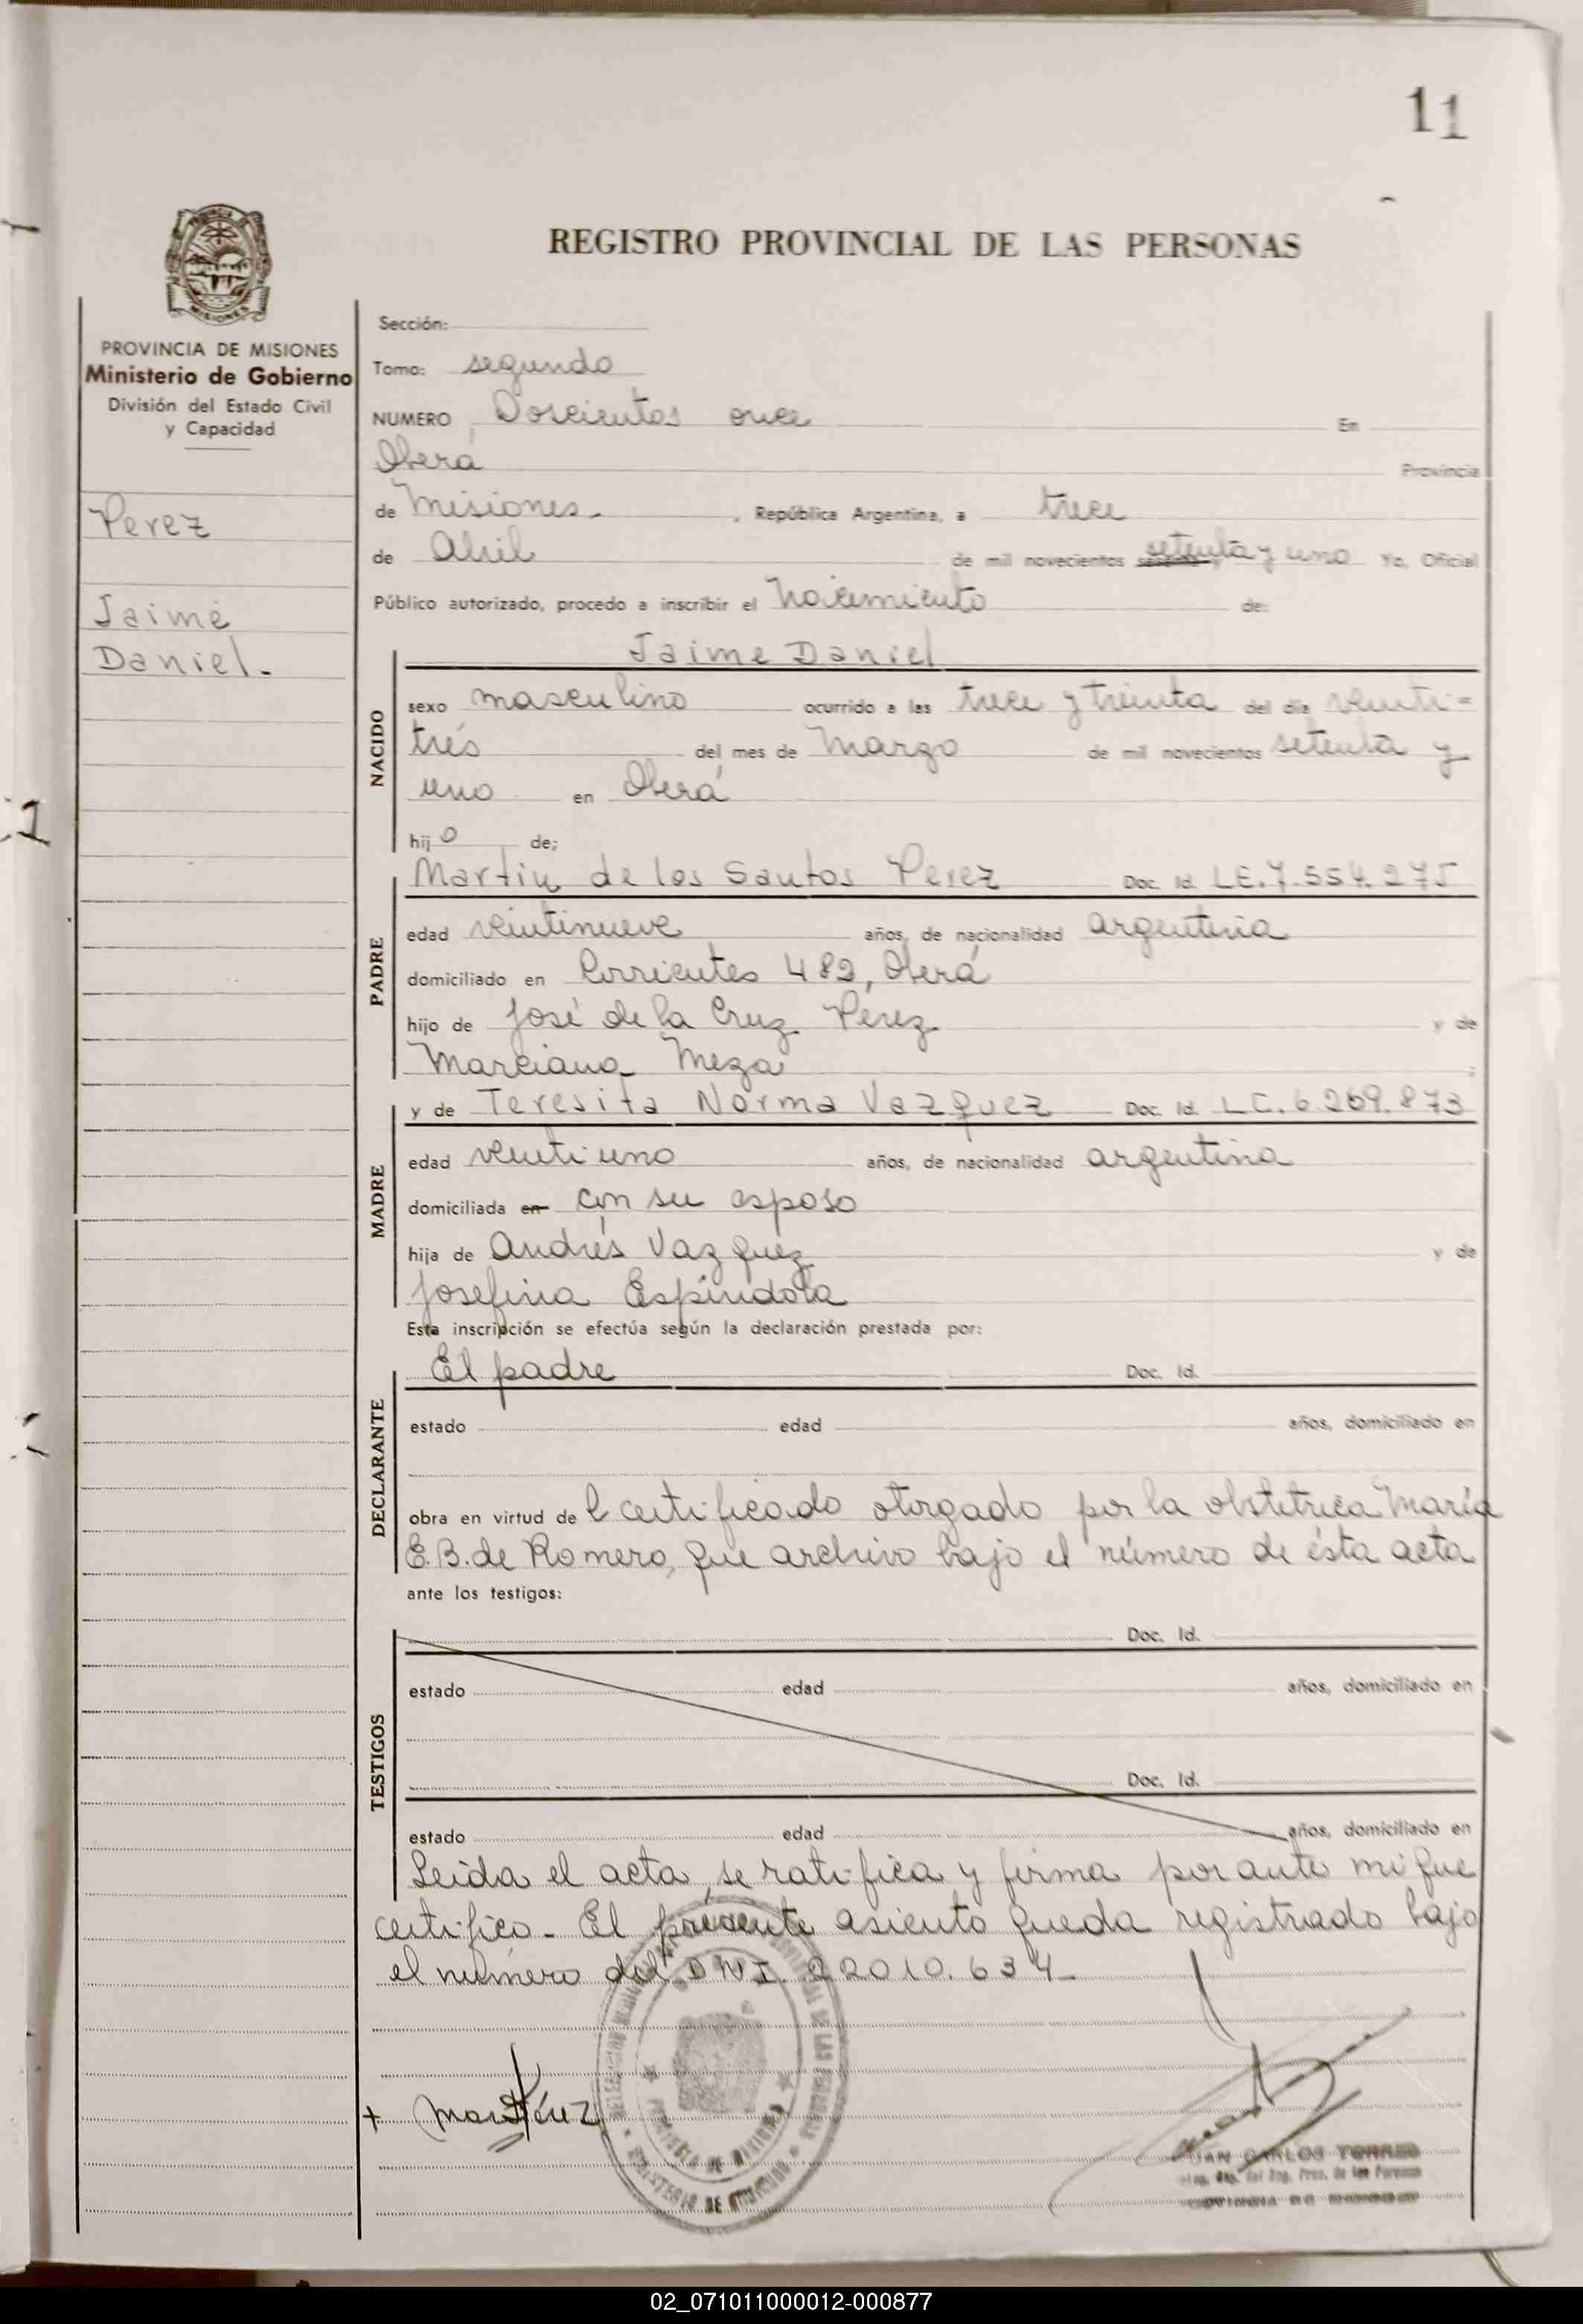 11
REGISTRO PROVINCIAL DE LAS PERSONAS
MISIONES
PROVINCIA DE MISIONES
Ministerio de Gobierno
División del Estado Civil
y Capacidad
Perez
Jaime
Daniel.
Sección:
Tomo: segundo
NUMERO Doscientos once En
Oberá Provincia
de Misiones. , República Argentina, a trece
de Abril de mil novecientos sesenta setenta y uno Yo, Oficial
Público autorizado, procedo a inscribir el Nacimiento de:
Jaime Daniel
NACIDO
sexo masculino ocurrido a las trece y treinta del día veinti=
trés del mes de Marzo de mil novecientos setenta y
uno en Oberá
hij o de;
PADRE
Martin de los Santos Perez Doc. Id. L.E. 7.554.275
edad veintinueve años, de nacionalidad argentina
domiciliado en Corrientes 482, Oberá
hijo de José de la Cruz Perez y de
Marciana Meza ;
MADRE
y de Teresita Norma Vazquez Doc. Id. L.C. 6.269.873
edad veintiuno años, de nacionalidad argentina
domiciliada en con su esposo
hija de Andrés Vazquez y de
Josefina Espindola
Esta inscripción se efectúa según la declaración prestada por:
DECLARANTE
El padre Doc. Id.
estado edad años, domiciliado en
obra en virtud de l certificado otorgado por la obstetrica María
E.B. de Romero, que archivo bajo el número de ésta acta
ante los testigos:
TESTIGOS
Doc. Id.
estado edad años, domiciliado en
Doc. Id.
estado edad años, domiciliado en
Leida el acta, se ratifica y firma por ante mi que
certifico. El presente asiento queda registrado bajo
el número del D N I. 22010.634
PROVINCIA DE MISIONES
MINISTERIO DE GOBIERNO
JUAN CARLOS TORRES
02_071011000012-000877